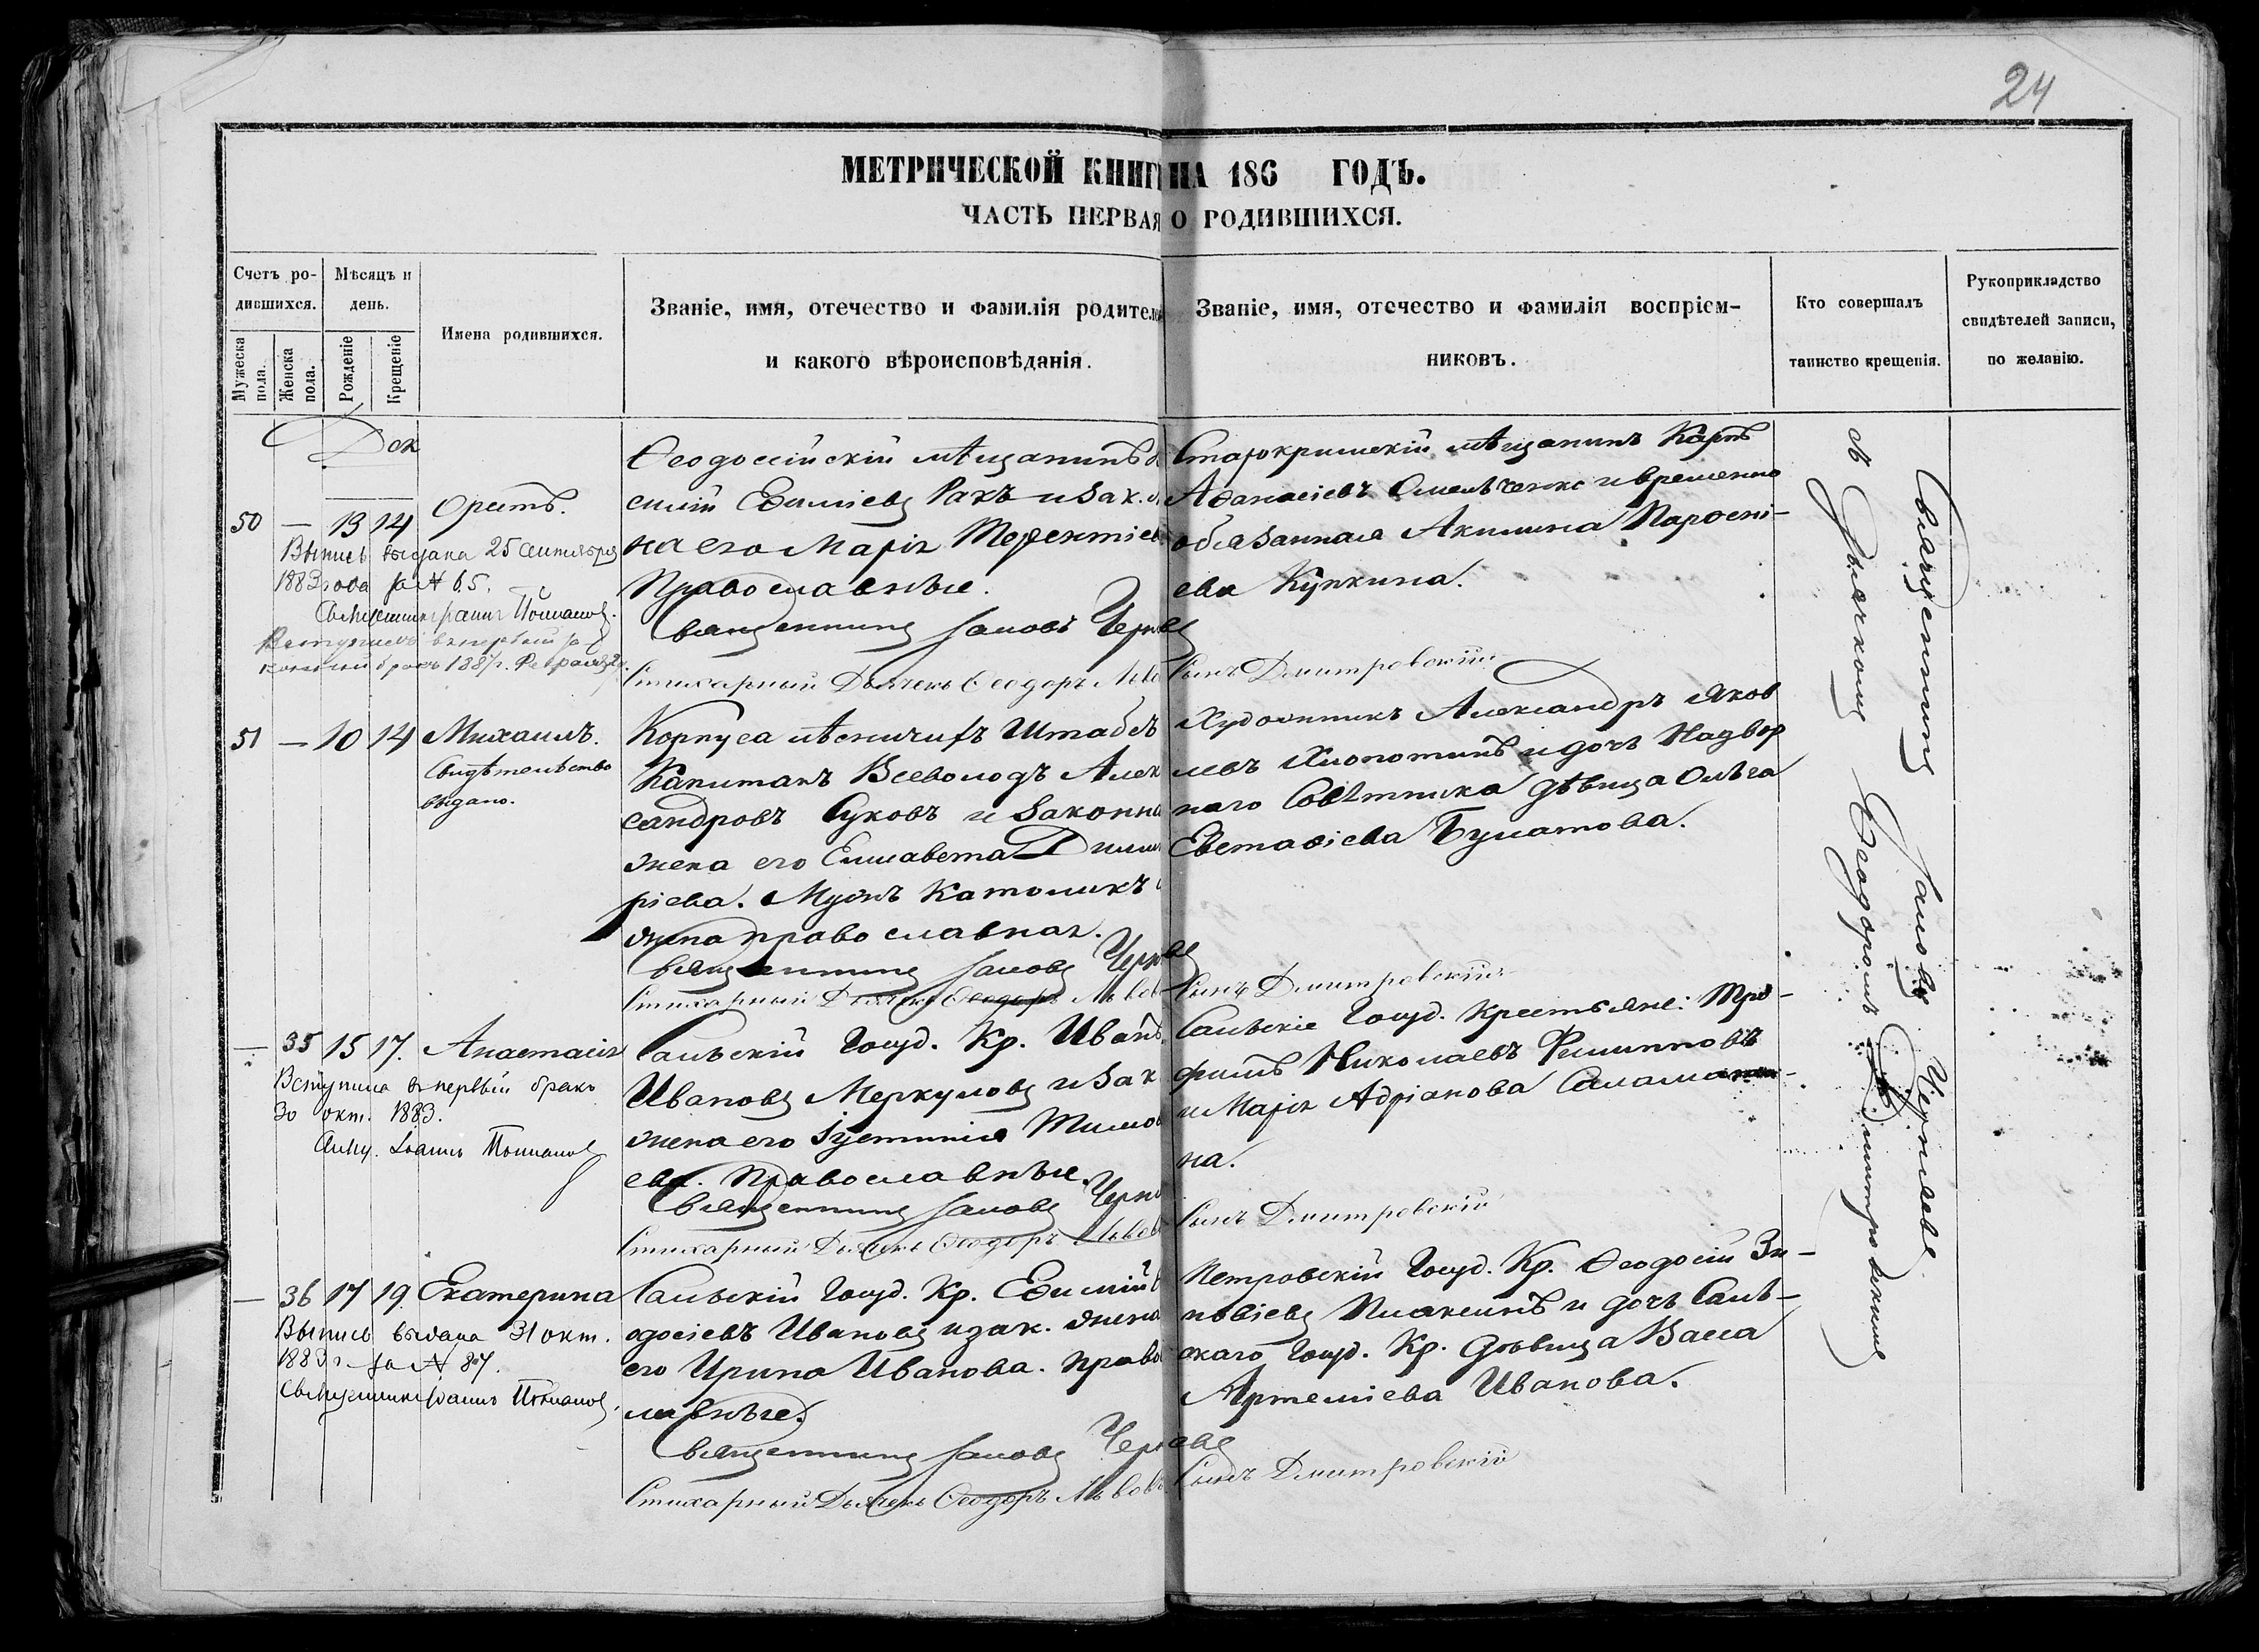 24
МЕТРИЧЕСКОЙ КНИГ НА 186 ГОДЪ.
ЧАСТЬ ПЕРВАЯ О РОДИВШИХСЯ.
Счетъ ро-
дившихся.
Мужеска пола.
Женска пола.
Мѣсяцъ и
день.
Рожденіе
Крещеніе
Имена родившихся.
Званіе, имя, отечество и фамилія родител
и какого вѣроисповѣданія.
Званіе, имя, отечество и фамилія воспріем-
никовъ.
Кто совершалъ
таинство крещенія.
Рукоприкладство
свидѣтелей записи,
по желанію.
Дек
50 — 13 14 Орестъ.
Выпись выдана 25 Сентября
1883 года за № 65.
Священникъ Іоаннъ
Вступилъ въ первый за
конный бракъ 1887 г. Февраля
Ѳеодосійскій мѣщанинъ
силій Евфиміевъ Ракъ и зак.
на его Марія Терентіев
Православные.
Священникъ Іаковъ Черня
Стихарный Дьячекъ Ѳеодоръ Льво
Старокрымскій мѣщанинъ Карпъ
Аѳанасіевъ Омельченко и временно
обязанная Акилина Парѳені-
ева Купкина.
Сынъ Дмитровскій
51 — 10 14 Михаилъ.
Свидѣтельство
выдано.
Корпуса лѣсничихъ Штабсъ
Капитанъ Всеволодъ Алек
сандровъ Суковъ и законна
жена его Елисавета Дими
ріева. Мужъ Католикъ
жена православная.
Священникъ Іаковъ Черня
Стихарный Дьячекъ Ѳеодоръ Львов
Художникъ Александръ Яков
левъ Клопотинъ и дочь Надвор
наго Совѣтника дѣвица Ольга
Евстафіева Булатова.
Сынъ Дмитровскій
— 35 15 17. Анастасія
Вступила въ первый бракъ
30 окт. 1883.
Свящ. Іоаннъ
Сальскій Госуд. Кр. Иванъ
Ивановъ Меркуловъ и зак
жена его Іустинія Тимоѳ
ева. Православные.
Священникъ Іаковъ Черня
Стихарный Дьячекъ Ѳеодоръ Львов
Сальскіе Госуд. Крестьяне: Тро-
фимъ Николаевъ Филипповъ
и Марія Адріанова
на.
Сынъ Дмитровскій
— 36 17 19. Екатерина
Выпись выдана 31 окт.
1883 г. за № 87.
Священникъ Іоаннъ
Сальскій Госуд. Кр. Евфимій
одосіевъ Ивановъ и зак. жена
его Ирина Иванова. Право
славные.
Священникъ Іаковъ Черняевъ
Стихарный Дьячекъ Ѳеодоръ Львов
Петровскій Госуд. Кр. Ѳеодосій Зи-
новіевъ Плаксинъ и дочь Саль-
скаго Госуд. Кр. дѣвица Васса
Артеміева Иванова.
Сынъ Дмитровскій
Священникъ Іаковъ Черняевъ
съ Дьячкомъ Ѳеодоромъ Дмитровскимъ